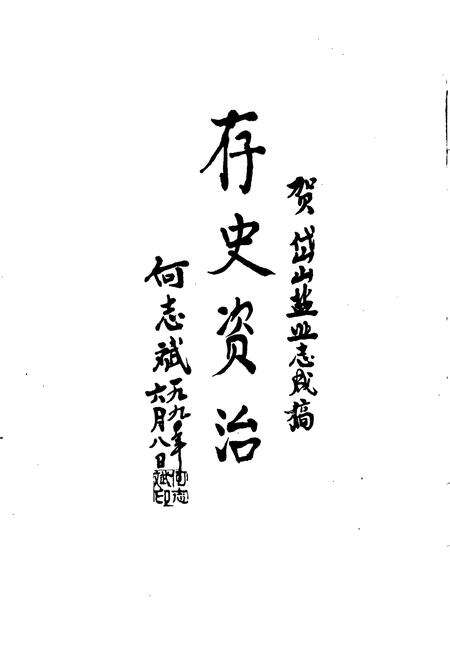 贺岱山盐业志成稿
存史资治
何志斌
一九九〇年
六月八日
何志
斌印